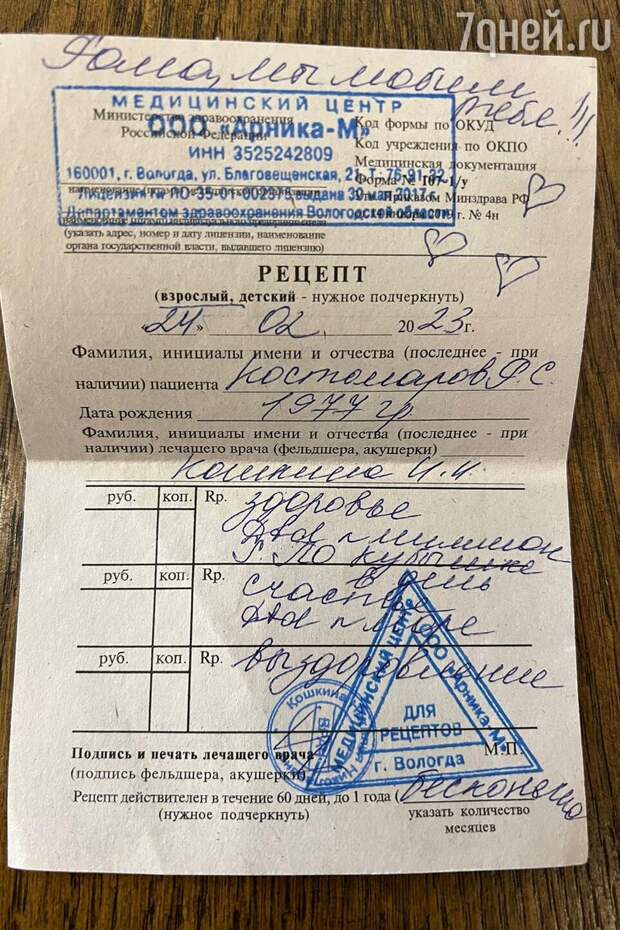 7дней.ru
Рома, мы любим
тебя!!!
МЕДИЦИНСКИЙ ЦЕНТР
Министерство здравоохранения
Российской Федерации
ООО «Арника-М»
ИНН 3525242809
160001, г. Вологда, ул. Благовещенская, 21, Т: 76-91-32
Лицензия № ЛО-35-01-002371 выдана 30 мая 2017 г.
Департаментом здравоохранения Вологодской области
Код формы по ОКУД
Код учреждения по ОКПО
Медицинская документация
Форма № 107-1/у
Утв. Приказом Минздрава РФ
2019 г. № 4н
(указать адрес, номер и дату лицензии, наименование
органа государственной власти, выдавшего лицензию)
РЕЦЕПТ
(взрослый, детский - нужное подчеркнуть)
«24» 02 2023г.
Фамилия, инициалы имени и отчества (последнее - при
наличии) пациента Костомаров Р.С.
Дата рождения 1977 гр
Фамилия, инициалы имени и отчества (последнее - при
наличии) лечащего врача (фельдшера, акушерки)
Кошкина И.И.
руб. коп. Rp. здоровье
миллион
в день
руб. коп. Rp. счастье
море
руб. коп. Rp. выздоровление
МЕДИЦИНСКИЙ ЦЕНТР ООО «Арника-М»
ДЛЯ
РЕЦЕПТОВ
г. Вологда
Кошкина
ВРАЧ
Подпись и печать лечащего врача М.П.
(подпись фельдшера, акушерки)
Рецепт действителен в течение 60 дней, до 1 года (бесконечно
(нужное подчеркнуть) указать количество
месяцев